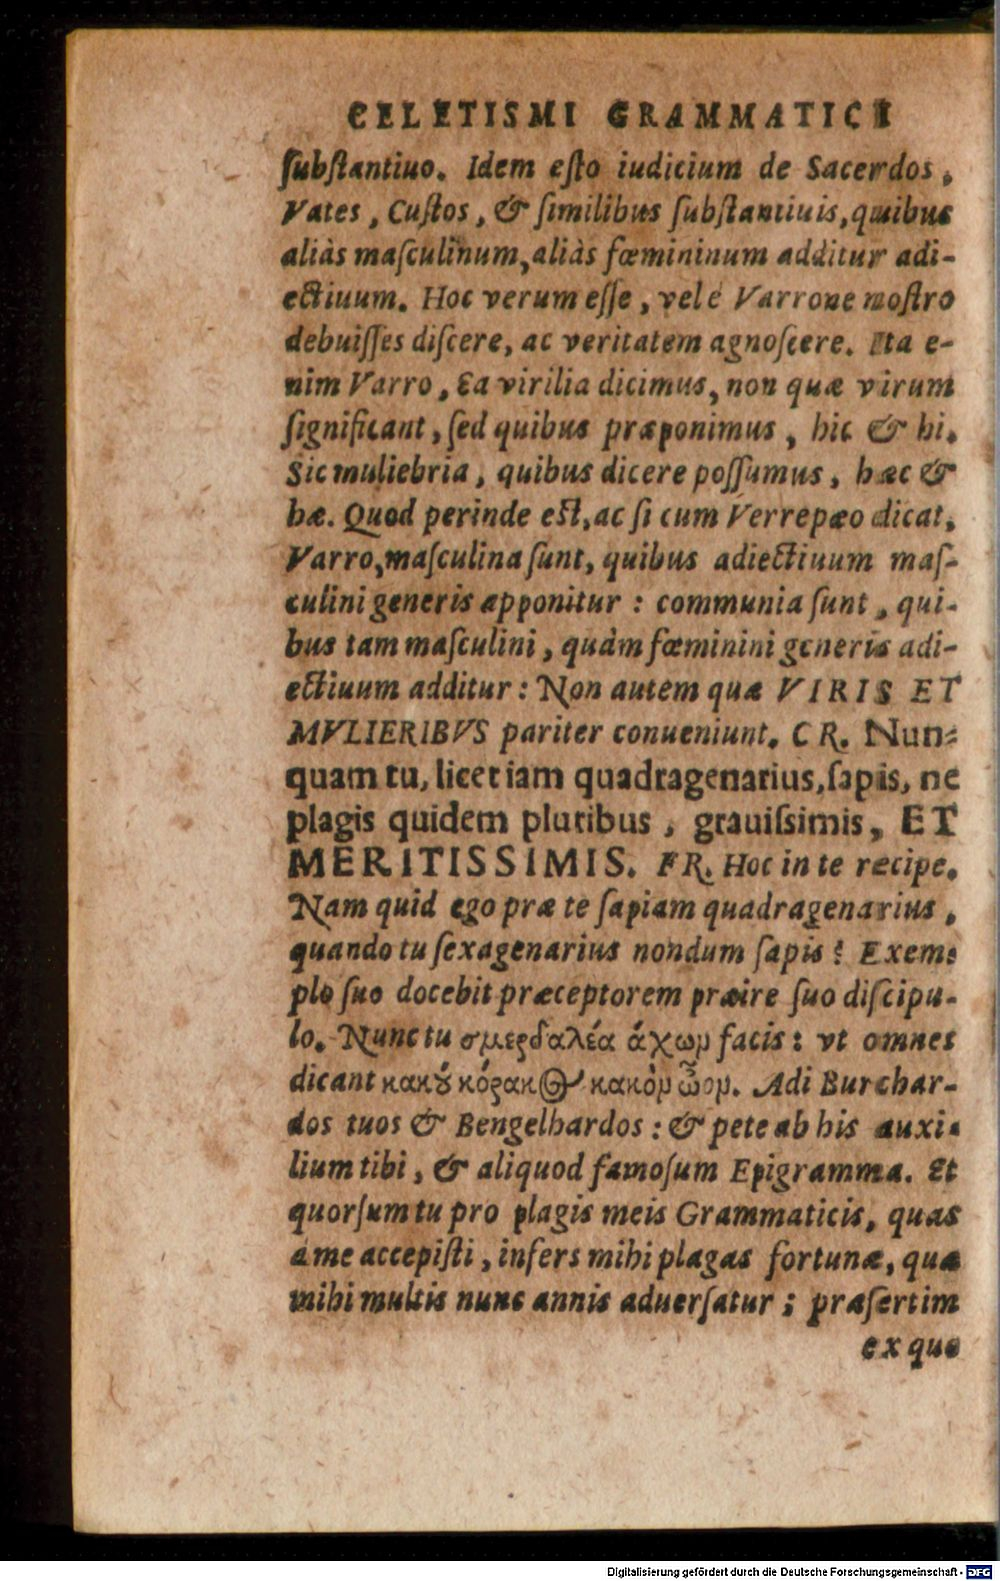 CELETISMI GRAMMATICI
ſubſtantiuo. Idem eſto iudicium de Sacerdos,
Vates, Cuſtos, & ſimilibus ſubſtantiuis, quibus
aliàs maſculinum, aliàs fœmininum additur adi-
ectiuum. Hoc verum eſſe, vel è Varrone noſtro
debuiſſes diſcere, ac veritatem agnoſcere. Ita e-
nim Varro, Ea virilia dicimus, non quæ virum
ſignificant, ſed quibus præponimus, hic & hi.
Sic muliebria, quibus dicere poſſumus, hæc &
hæ. Quod perinde eſt, ac ſi cum Verrepæo dicat,
Varro, maſculina ſunt, quibus adiectiuum maſ-
culini generis apponitur: communia ſunt, qui-
bus tam maſculini, quàm fœminini generis adi-
ectiuum additur: Non autem quæ VIRIS ET
MVLIERIBVS pariter conueniunt. CR. Nun-
quam tu, licet iam quadragenarius, ſapis, ne
plagis quidem pluribus, grauiſsimis, ET
MERITISSIMIS. FR. Hoc in te recipe.
Nam quid ego præ te ſapiam quadragenarius,
quando tu ſexagenarius nondum ſapis? Exem-
plo ſuo docebit præceptorem præire ſuo diſcipu-
lo. Nunc tu σμερδαλέα ἄχων facis: vt omnes
dicant κακοῦ κόρακος κακὸν ὦον. Adi Burchar-
dos tuos & Bengelhardos: & pete ab his auxi-
lium tibi, & aliquod famoſum Epigramma. Et
quorſum tu pro plagis meis Grammaticis, quas
à me accepiſti, infers mihi plagas fortunæ, quæ
mihi multis nunc annis aduerſatur; præſertim
ex quo
Digitalisierung gefördert durch die Deutsche Forschungsgemeinschaft - DFG